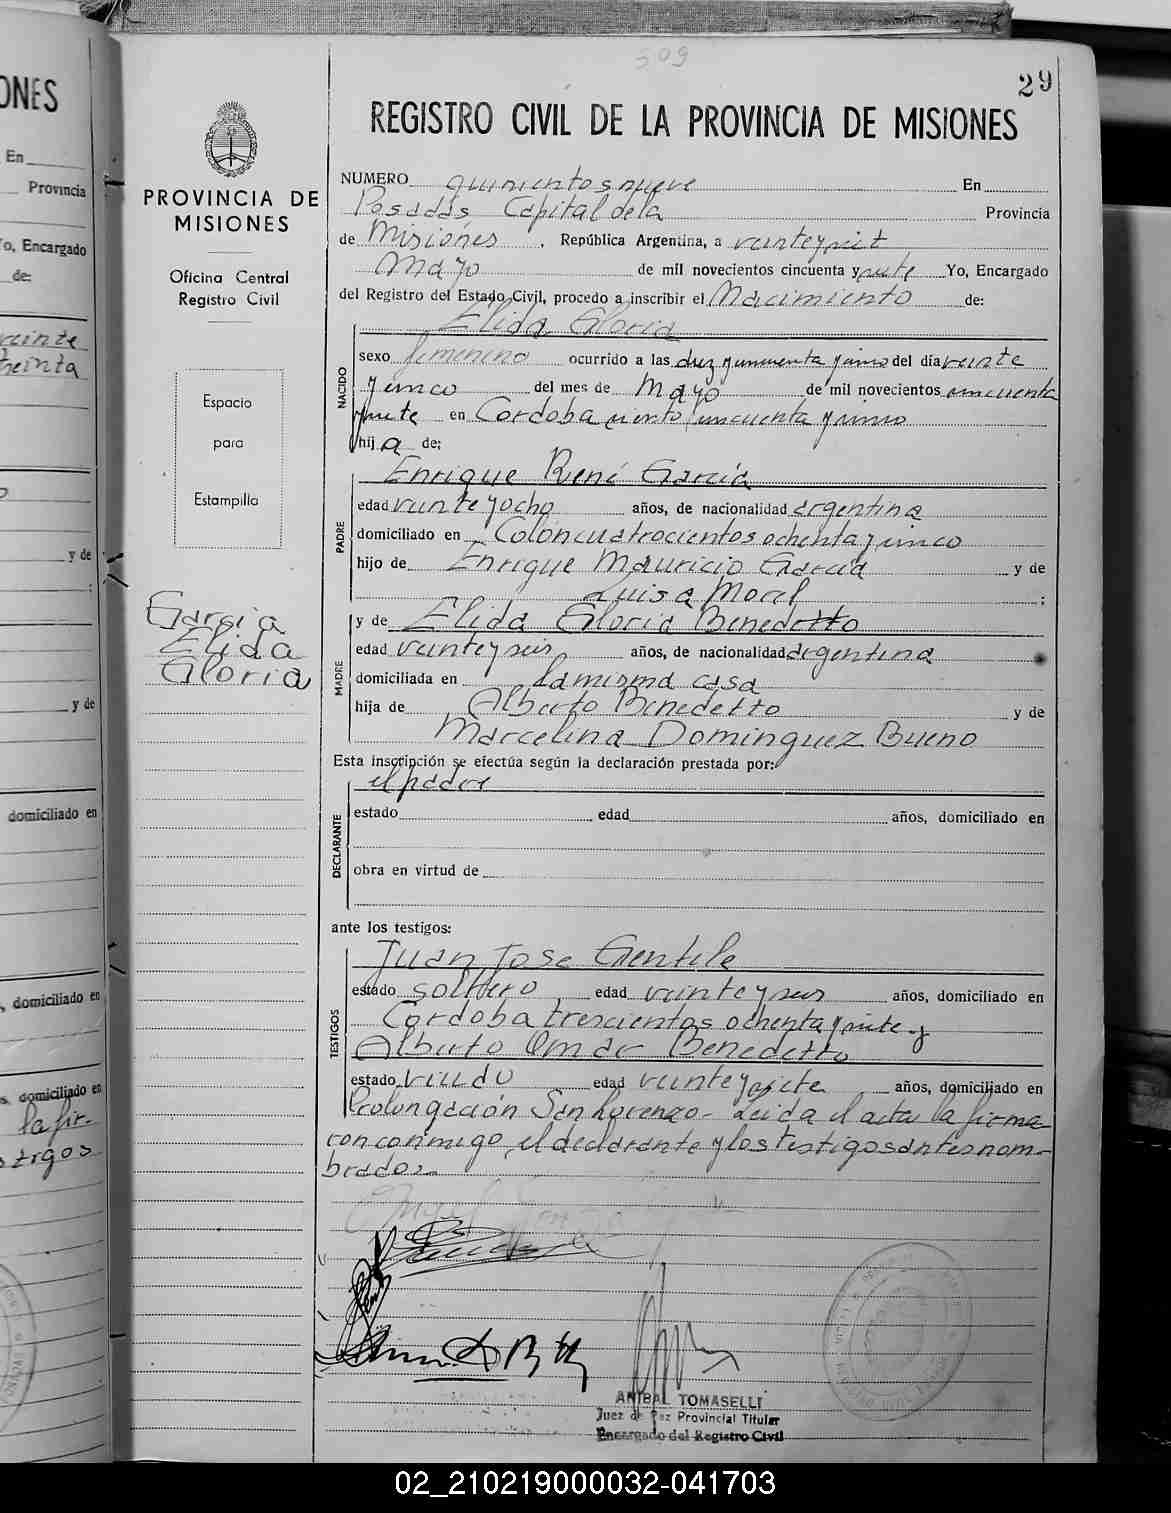 509
29
ONES
REGISTRO CIVIL DE LA PROVINCIA DE MISIONES
PROVINCIA DE
MISIONES
Oficina Central
Registro Civil
Espacio
para
Estampilla
Garsia
Elida
Gloria
En
Provincia
Yo, Encargado
de:
veinte
treinta
y de
y de
domiciliado en
, domiciliado en
domiciliado en
la fir-
NUMERO quinientos nueve En
Posadas Capital de la Provincia
de Misiones , República Argentina, a
Mayo de mil novecientos cincuenta y siete Yo, Encargado
del Registro del Estado Civil, procedo a inscribir el Nacimiento de:
Elida Gloria
NACIDO
sexo femenino ocurrido a las diez y cincuenta y cinco del día veinte
y cinco del mes de Mayo de mil novecientos cincuenta
y siete en Cordoba ciento cincuenta y cinco
hija de:
Enrique René García
PADRE
edad veinte y ocho años, de nacionalidad argentina
domiciliado en Colon cuatrocientos ochenta y cinco
hijo de Enrique Mauricio Garcia y de
Luisa Morel ;
y de Elida Gloria Benedetto
MADRE
edad veinte y seis años, de nacionalidad argentina
domiciliada en la misma casa
hija de Alberto Benedetto y de
Marcelina Dominguez Bueno
Esta inscripción se efectúa según la declaración prestada por:
el padre
DECLARANTE
estado edad años, domiciliado en
obra en virtud de
ante los testigos:
Juan Jose Gentile
TESTIGOS
estado soltero edad veinte y seis años, domiciliado en
Cordoba trescientos ochenta y siete y
Alberto Omar Benedetto
estado viudo edad veinte y siete años, domiciliado en
Prolongación San Lorenzo - Leida el acta la firma
ron conmigo, el declarante y los testigos antes nom-
brados.
ANIBAL TOMASELLI
Juez de Paz Provincial Titular
Encargado del Registro Civil
02_210219000032-041703